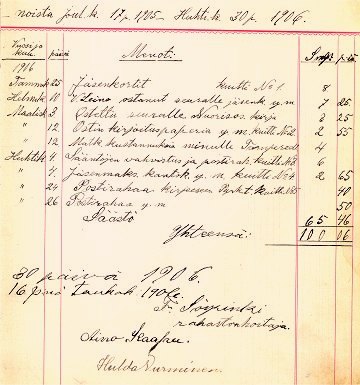 noista joul.k. 17 p. 1905 – Huhtik. 30 p. 1906.
Vuosi ja kuuk. päivä Menot: Smk. p:iä
1906
Tammik 25 Jäsenkortit kuitti No 1. 8
Helmik 10 ostanut seuralle jäsenk. y.m 7 25
Maalisk 3 Ostettu seuralle Nuorison kirja 3 25
" 12 Ostin kirjoituspaperia y m. kuitti No 2 2 55
" 12 Matk. kustannuksia minulle 4
Huhtik 4 Sääntöjen vahvistus ja postirah. kuitti No 3 6
" 4. Jäsenmaks. y. m. kuitti No 4 2 65
" 24 Postirahaa kirjeeseen kuitti No 5 40
" 26 Postirahaa y. m 50
Säästö 65 46
Yhteensä: 100 06
30 päivä 1906.
16 p:nä Toukok. 1906.
F.
rahastonhoitaja.
Aino
Hulda Nurminen